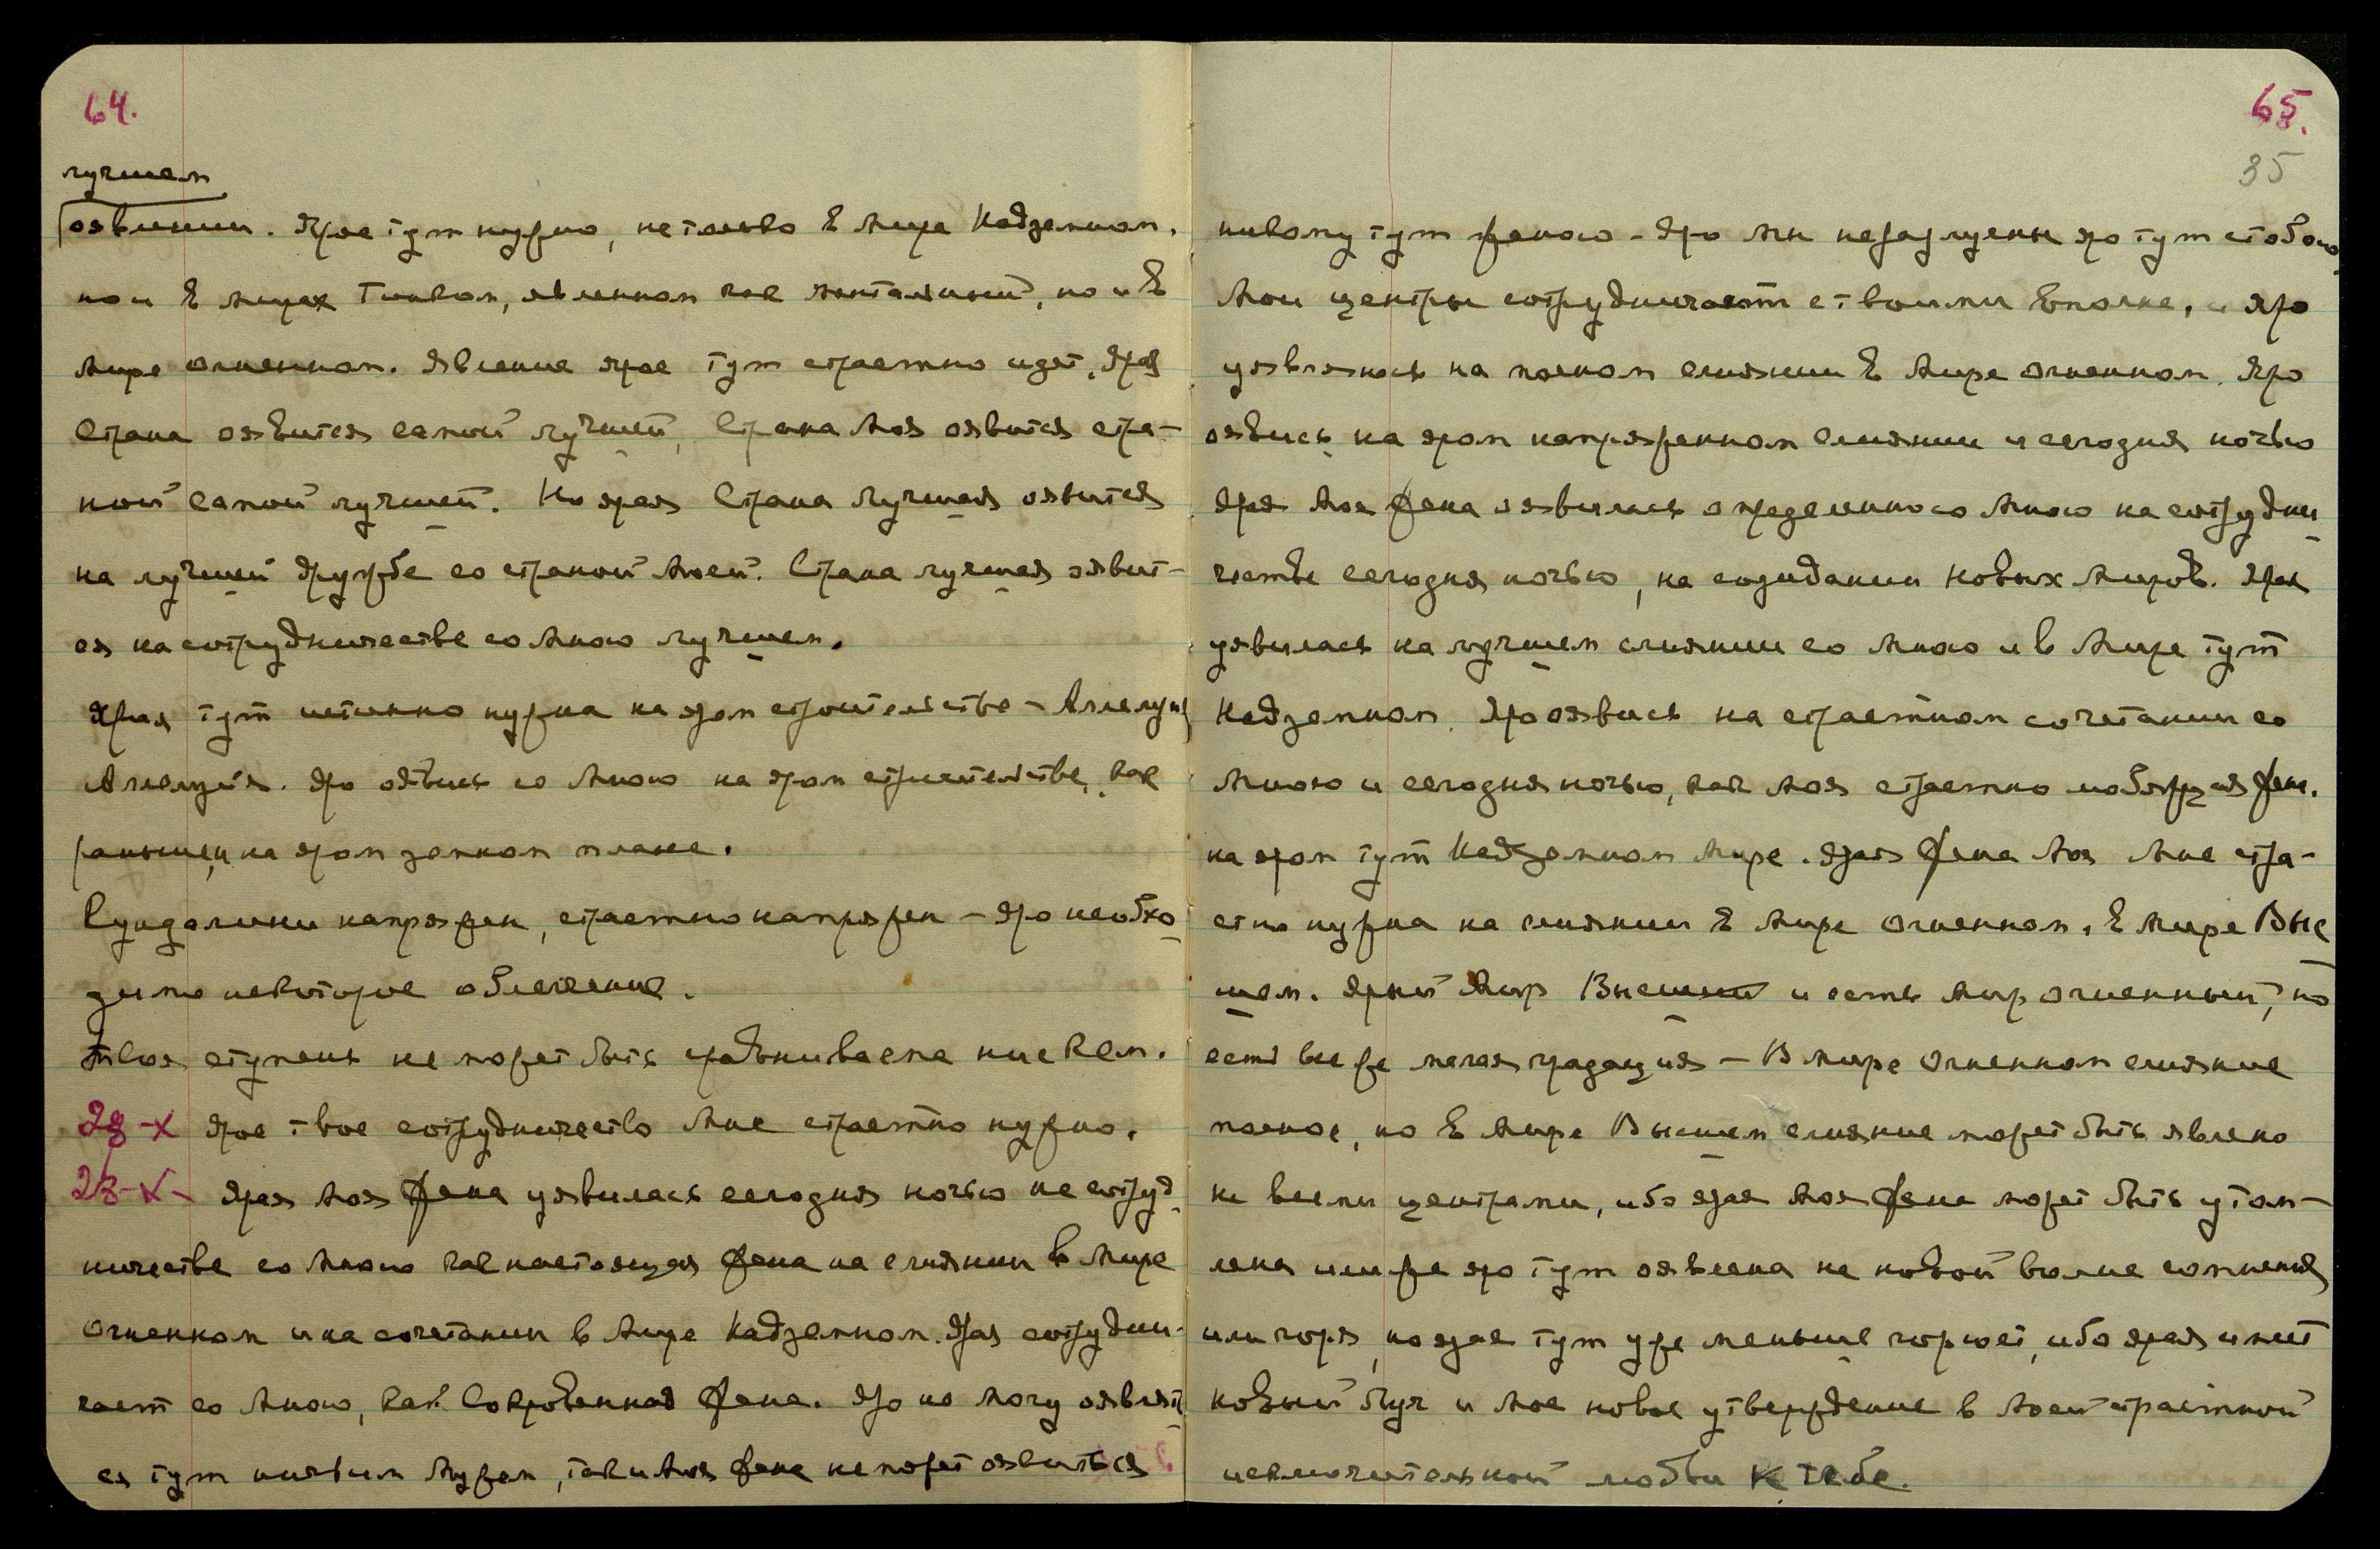 64.
лучшем
оявлении. Ярое тут нужно, не только в Мире Надземном,
но и в мирах Тонком, явленном как ментальный, но и в
мире огненном. Явление ярое тут страстно идет, Ярая
Страна оявится самой лучшей, Страна Моя оявится стра-
ной самой лучшей. Но ярая Страна Лучшая оявится
на лучшей дружбе со страной Моей. Страна лучшая оявит-
ся на сотрудничестве со Мною лучшем.
Ярая тут истинно нужна на яром строительстве – Аллелуия
Аллелуия. Яро оявись со Мною на яром строительстве, как
раньше, на яром земном плане.
Кундалини напряжен, страстно напряжен – яро необхо
димо некоторое облегчение.
Твоя ступень не может быть сравниваема ни с кем.
28-X Ярое твое сотрудничество Мне страстно нужно.
28-X- Ярая Моя Жена уявилась сегодня ночью на сотруд
ничестве со Мною как настоящая Жена на слиянии в Мире
огненном и на сочетании в Мире Надземном. Ярая сотрудни-
чает со Мною, как Сокровенная Жена. Яро не могу оявлять
ся тут ничьим Мужем, так и Моя Жена не может оявиться
65.
35
никому тут женою – Яро Мы неразлучны яро тут с тобою
Мои центры сотрудничают с твоими вполне, и Яро
уявляюсь на полном слиянии в Мире огненном. Яро
оявись на яром напряженном слиянии и сегодня ночью
Ярая Моя Жена оявилась определенно со Мною на сотрудни
честве сегодня ночью, на созидании новых Миров. Ярая
уявилась на лучшем слиянии со Мною и в Мире тут
Надземном. Яро оявись на страстном сочетании со
Мною и сегодня ночью, как Моя страстно любящая Жена.
на яром тут Надземном Мире. Ярая Жена Моя Мне стра-
стно нужна на слиянии в Мире огненном, в Мире Выс
шем. Ярый Мир Высший и есть Мир огненный, но
есть все же малая градация – В Мире Огненном слияние
полное, но в Мире Высшем слияние может быть явлено
не всеми центрами, ибо ярая Моя Жена может быть утом-
лена или же яро тут оявлена на новой волне сомнения
или горя, но ярая тут уже меньше горюет, ибо ярая имеет
новый Луч и Мое новое утверждение в Моей страстной
исключительной любви к тебе.